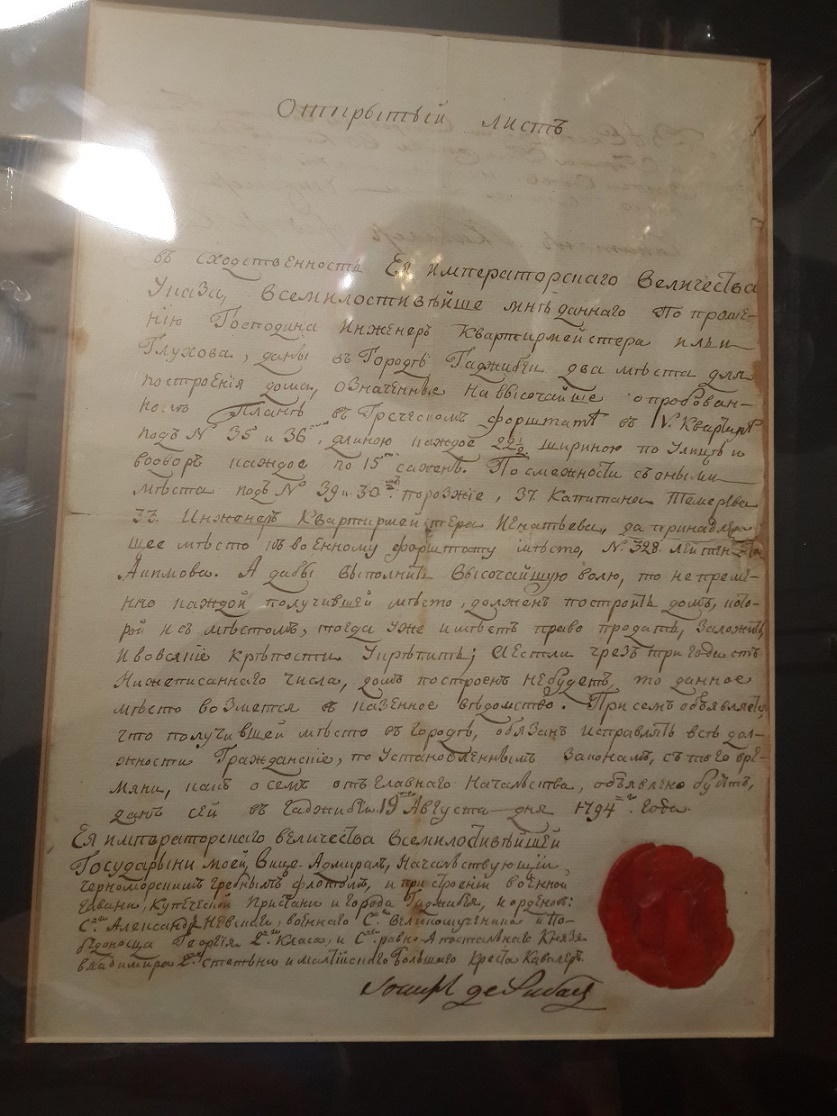 Открытый листъ
въ сходственность Ея императорскаго величества
Указа, всемилостивѣйше мнѣ даннаго По проше-
нію Господина Инженеръ Квартирмейстера ильи
Глухова, даны въ Городѣ Гаджибеи два мѣста для
построенія дома, означенные на высочайше опробован-
номъ Планѣ въ Греческомъ форштатѣ въ IV. Кварталѣ
подъ № 35 и 36, длиною каждое 22½ шириною по Улицѣ и
воворъ каждое по 15 саженъ. По смежности съ оными
мѣста подъ № 39 и 30 порозжіе, 37. Капитана
33. Инженеръ Квартирмейстера Игнатьева, да принадлежа-
щее мѣсто къ военному форштату мѣсто, №. 328 лейтенанта
Акимова. А дабы выполнить высочайшую волю, то непремѣ-
нно каждой получившей мѣсто, долженъ построить домъ, кото-
рой и съ мѣстомъ, тогда уже имѣетъ право продать, заложить,
и во всякіе крѣпости укрѣпить; А естли чрезъ три года отъ
Нижеписаннаго числа, домъ построенъ небудетъ, то данное
мѣсто возмется въ казенное вѣдомство. При семъ объявляется,
что получившей мѣсто въ городѣ, обязанъ исправлять всѣ дол-
жности Гражданскіе, по Установленнымъ Законамъ, съ того вре-
мяни, какъ о семъ отъ главнаго Начальства, объявлено будетъ,
данъ сей въ Гаджибеи 19 Августа дня 1794 года
Ея императорскаго величества всемилостивѣйшей
Государыни моей, Вице-Адмиралъ, Начальствующій
черноморскимъ гребнымъ флотомъ, и при строеніи военной
гавани, купеческой пристани и города Гаджибея, и орденовъ:
С. Александра Невскаго, военнаго С. великомученика и По-
бѣдоносца Георгія 2. Класа, и С. равно Апостольнаго Князя
владимира 2. степени и малтійскаго большаго креста Кавалеръ.
Іосифъ де Рибасъ